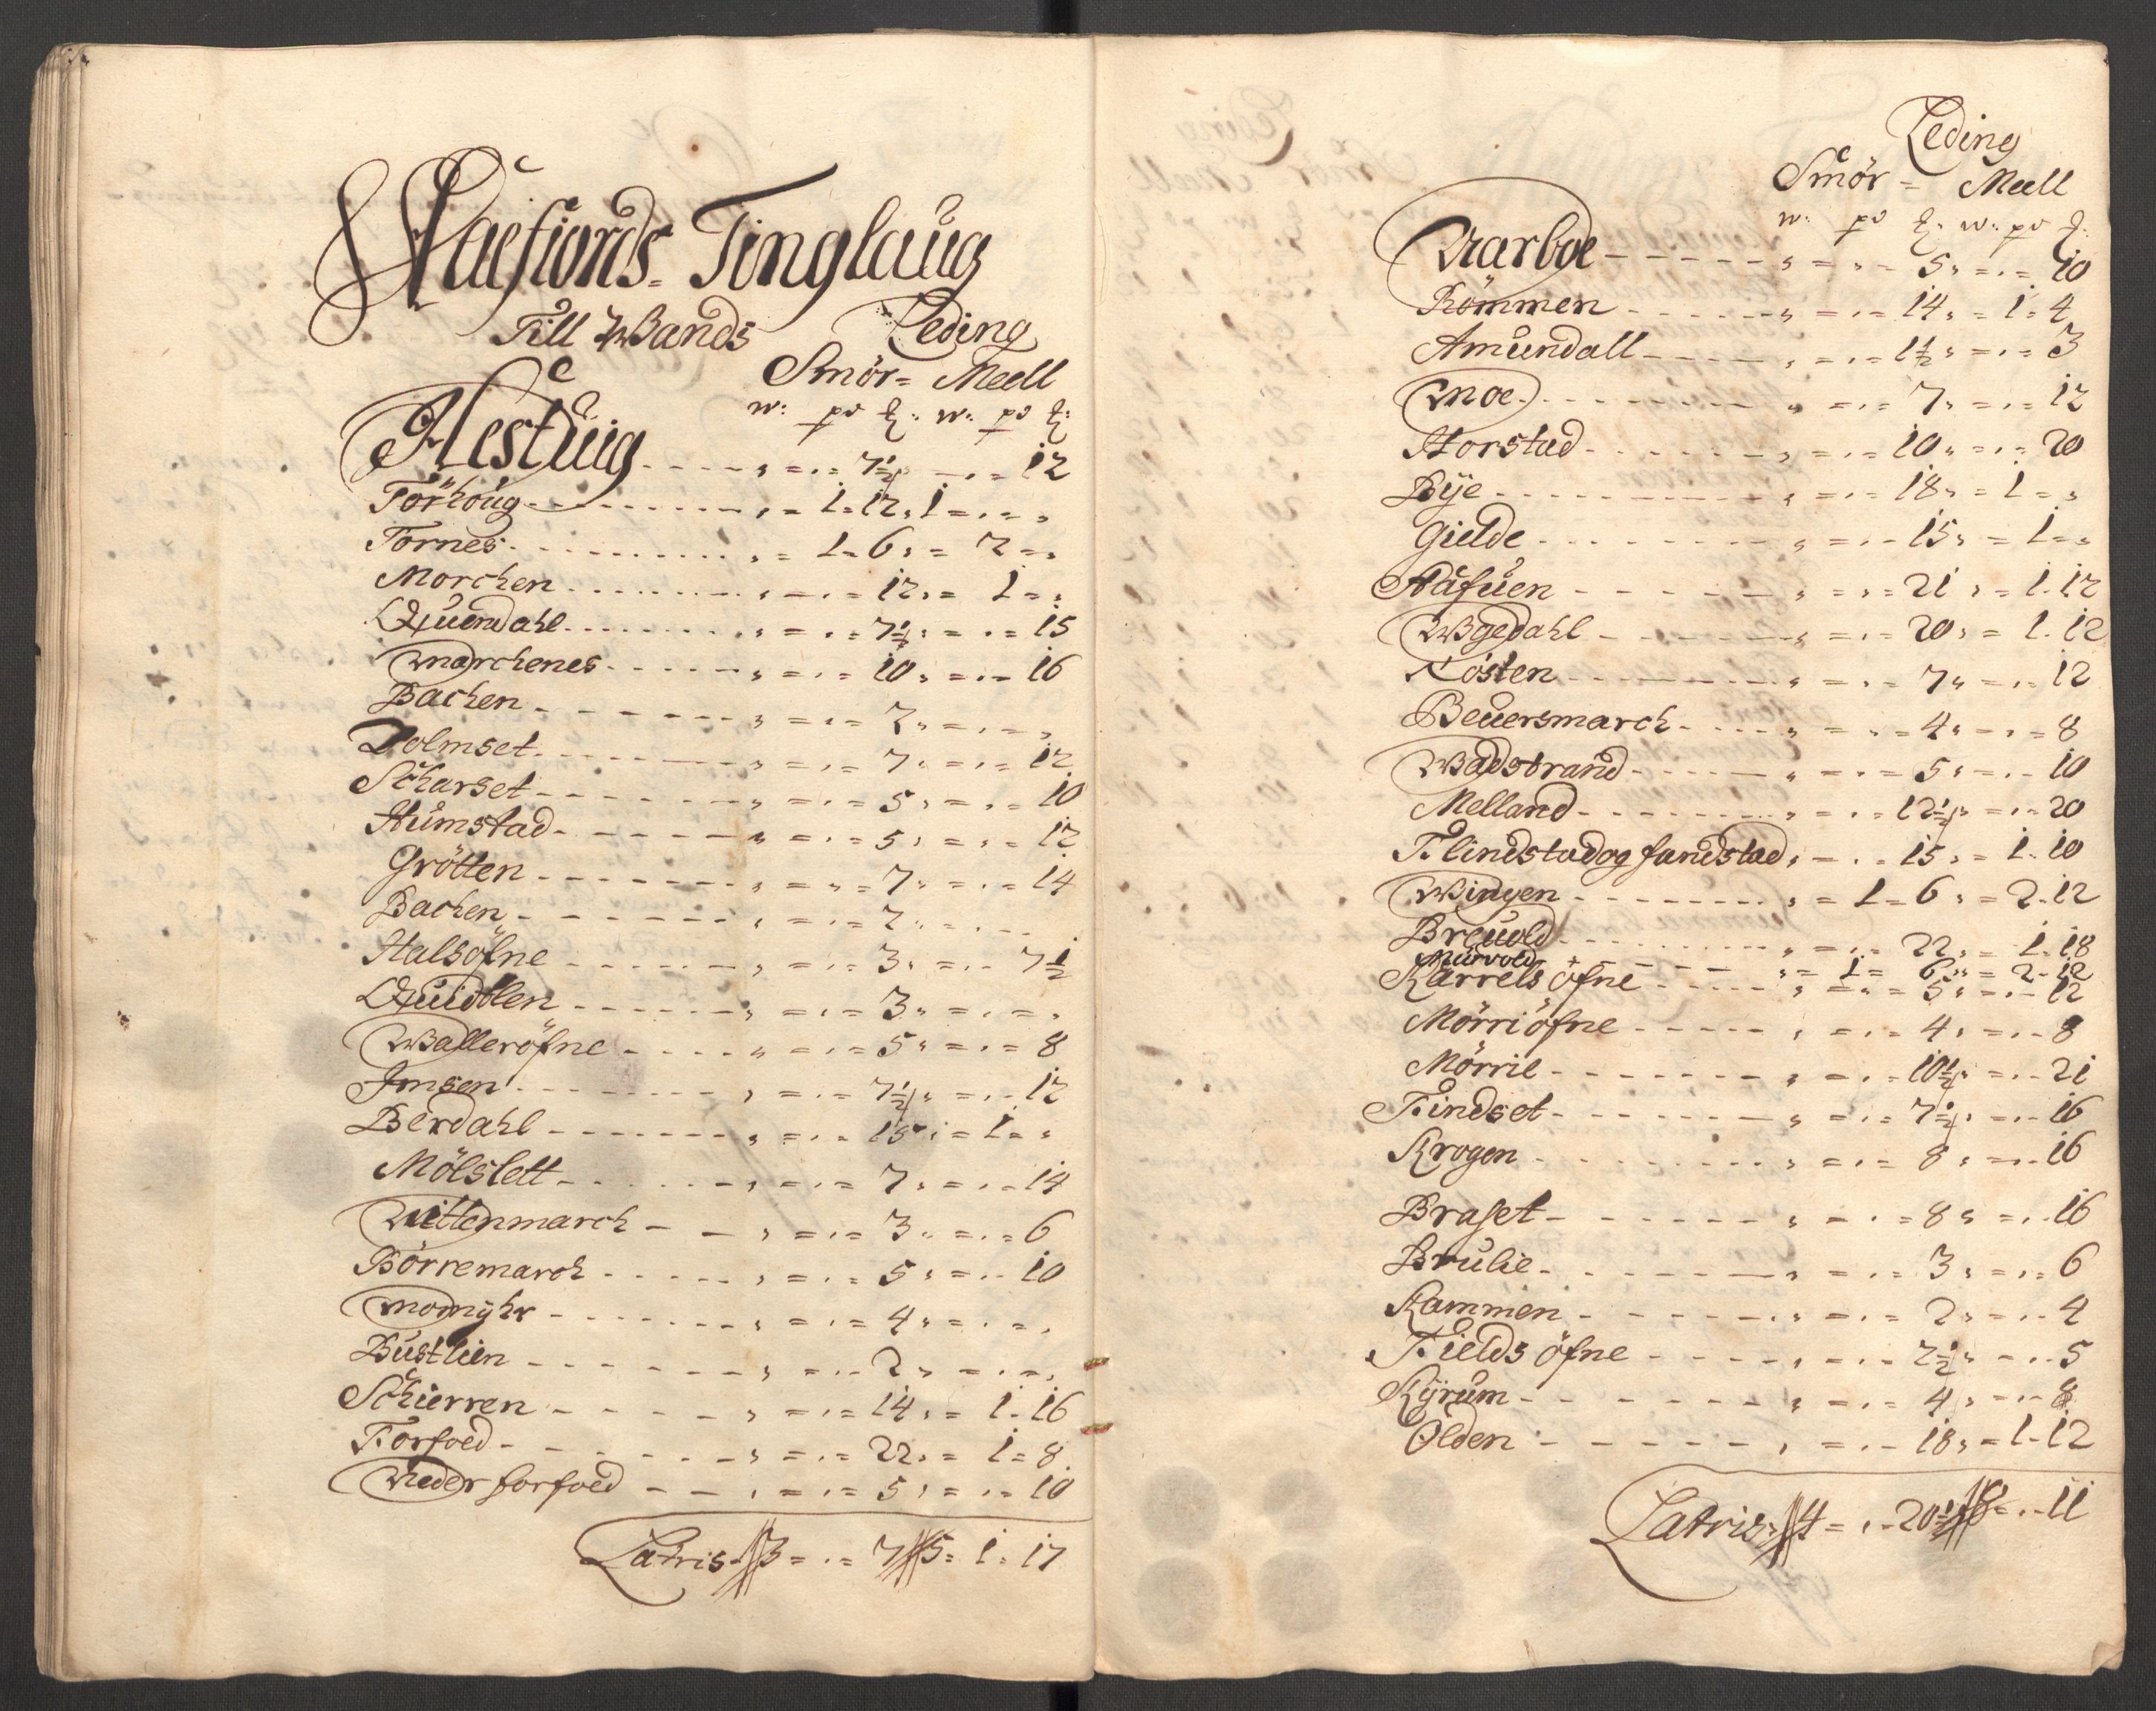 Aaefiords Tinglaug
Till Wands Leding
Smör = Meell
w: pd ℔: w: pd ℔:
Hestuig - - - - „ = „ = 7½ „ - „ = 12
Törhoug - - - - „ = 1 = 12 „ 1 = „ = „
Tornes - - - - „ = 1 = 6 „ = 2 = „
Morchen - - - - „ = „ = 12 „ = 1 = „
Quendahl - - - - „ = „ = 7½ „ = „ = 15
Marchenes - - - - „ = „ = 10 „ = „ = 16
Bachen - - - - „ = „ = 2 „ = „ = „
Dolmset - - - - „ = „ = 7 „ = „ = 12
Scharset - - - - „ = „ = 5 „ = „ = 10
Humstad - - - - „ = „ = 5 „ = „ = 12
Grötten - - - - „ = „ = 7 „ = „ = 14
Bachen - - - - „ = „ = 2 „ = „ = „
Halsöfne - - - - „ = „ = 3 „ = „ = 7½
Quidtlen - - - - „ = „ = 3 „ = „ = „
Walleröfne - - - - „ = „ = 5 „ = „ = 8
Imsen - - - - „ = „ = 7½ „ = „ = 12
Berdahl - - - - „ = „ = 15 „ = 1 = „
Mölslett - - - - „ = „ = 7 „ = „ = 14
Vittenmarch - - „ = „ = 3 „ = „ = 6
Börremarch - - - - „ = „ = 5 „ = „ = 10
Momyhr - - - - „ = „ = 4 „ = „ = „
Bustlien - - - - „ = „ = 2 „ = „ = „
Schierren - - - - „ = „ = 14 „ = 1 = 16
Forfoed - - - - „ = „ = 22 „ = 1 = 8
Neder forfoed - - „ = „ = 5 „ = „ = 10
Latris 3 = „ = 7 5 = 1 = 17
Leding
Smör = Meell
w: pd ℔: w: pd ℔:
Narboe - - - - „ = „ = 5 „ = „ = 10
Römmen - - - - „ = „ = 14 „ = 1 = 4
Amundall - - - - „ = „ = 1½ „ = „ = 3
Moe - - - - „ = „ = 7 „ = „ = 12
Horstad - - - - „ = „ = 10 „ = „ = 20
Bye - - - - „ = „ = 18 „ = 1 = „
Gielde - - - - „ = „ = 15 „ = 1 = „
Aafuen - - - - „ = „ = 21 „ = 1 = 12
Wgedahl - - - - „ = „ = 20 „ = 1 = 12
Kosten - - - - „ = „ = 7 „ = „ = 12
Beuersmarch - - - - „ = „ = 4 „ = „ = 8
Wadstrand - - - - „ = „ = 5 „ = „ = 10
Melland - - - - „ = „ = 12½ „ = „ = 20
Flindstad og sandstad „ = „ = 15 „ = 1 = 10
Wingen - - - - „ = 1 = 6 „ = 2 = 12
Breuold - - - - „ = „ = 22 „ = 1 = 18
Murvold - - - - „ = 1 = 6 „ = 2 = 12
Karrels öfne - - - - „ = „ = 5 „ = „ = 12
Mörriöfne - - - - „ = „ = 4 „ = „ = 8
Mörrie - - - - „ = „ = 10½ „ = „ = 21
Findset - - - - „ = „ = 7½ „ = „ = 16
Krogen - - - - „ = „ = 8 „ = „ = 16
Braset - - - - „ = „ = 8 „ = „ = 16
Brulie - - - - „ = „ = 3 „ = „ = 6
Kammen - - - - „ = „ = 2 „ = „ = 4
Fields öfne - - - - „ = „ = 2½ „ = „ = 5
Kyrum - - - - „ = „ = 4 „ = „ = 8
Olden - - - - „ = „ = 18 „ = 1 = 12
Latris 4 = „ = 20½ 8 = „ = 11